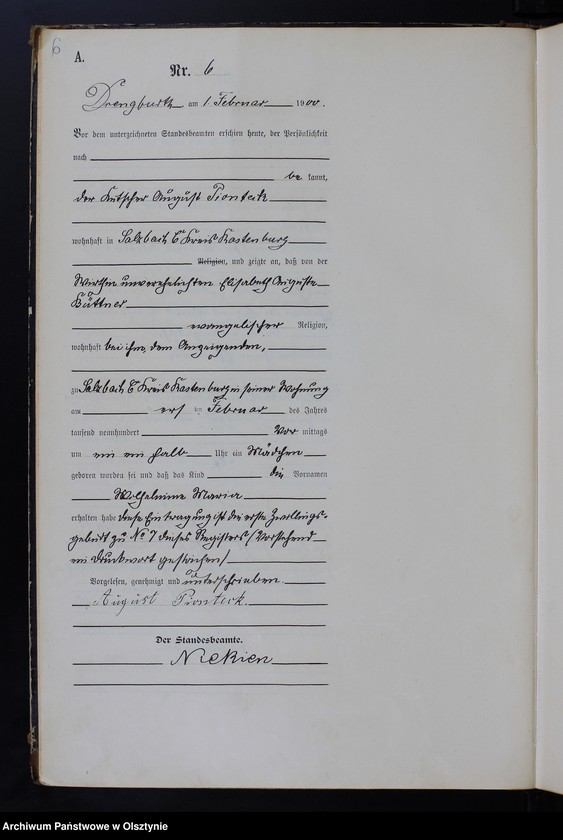 6
A.
Nr. 6
Drengfurth am 1 Februar 1900.
Vor dem unterzeichneten Standesbeamten erschien heute, der Persönlichkeit
nach
be kannt,
der Kutscher August Pionteck
wohnhaft in Salzbach C Kreis Rastenburg
Religion, und zeigte an, daß von der
Wirthin unverehelichten Elisabeth Auguste
Büttner
evangelischer Religion,
wohnhaft bei ihm, dem Anzeigenden,
zu Salzbach C Kreis Rastenburg in seiner Wohnung
am ersten Februar des Jahres
tausend neunhundert Vor mittags
um ein ein halb Uhr ein Mädchen
geboren worden sei und daß das Kind die Vornamen
Wilhelmine Maria
erhalten habe diese Eintragung ist die erste Zwillings-
geburt zu No 7 dieses Registers (Vorstehend
ein Druckwort gestrichen)
Vorgelesen, genehmigt und unterschrieben.
August Pionteck.
Der Standesbeamte.
Niekien
Archiwum Państwowe w Olsztynie